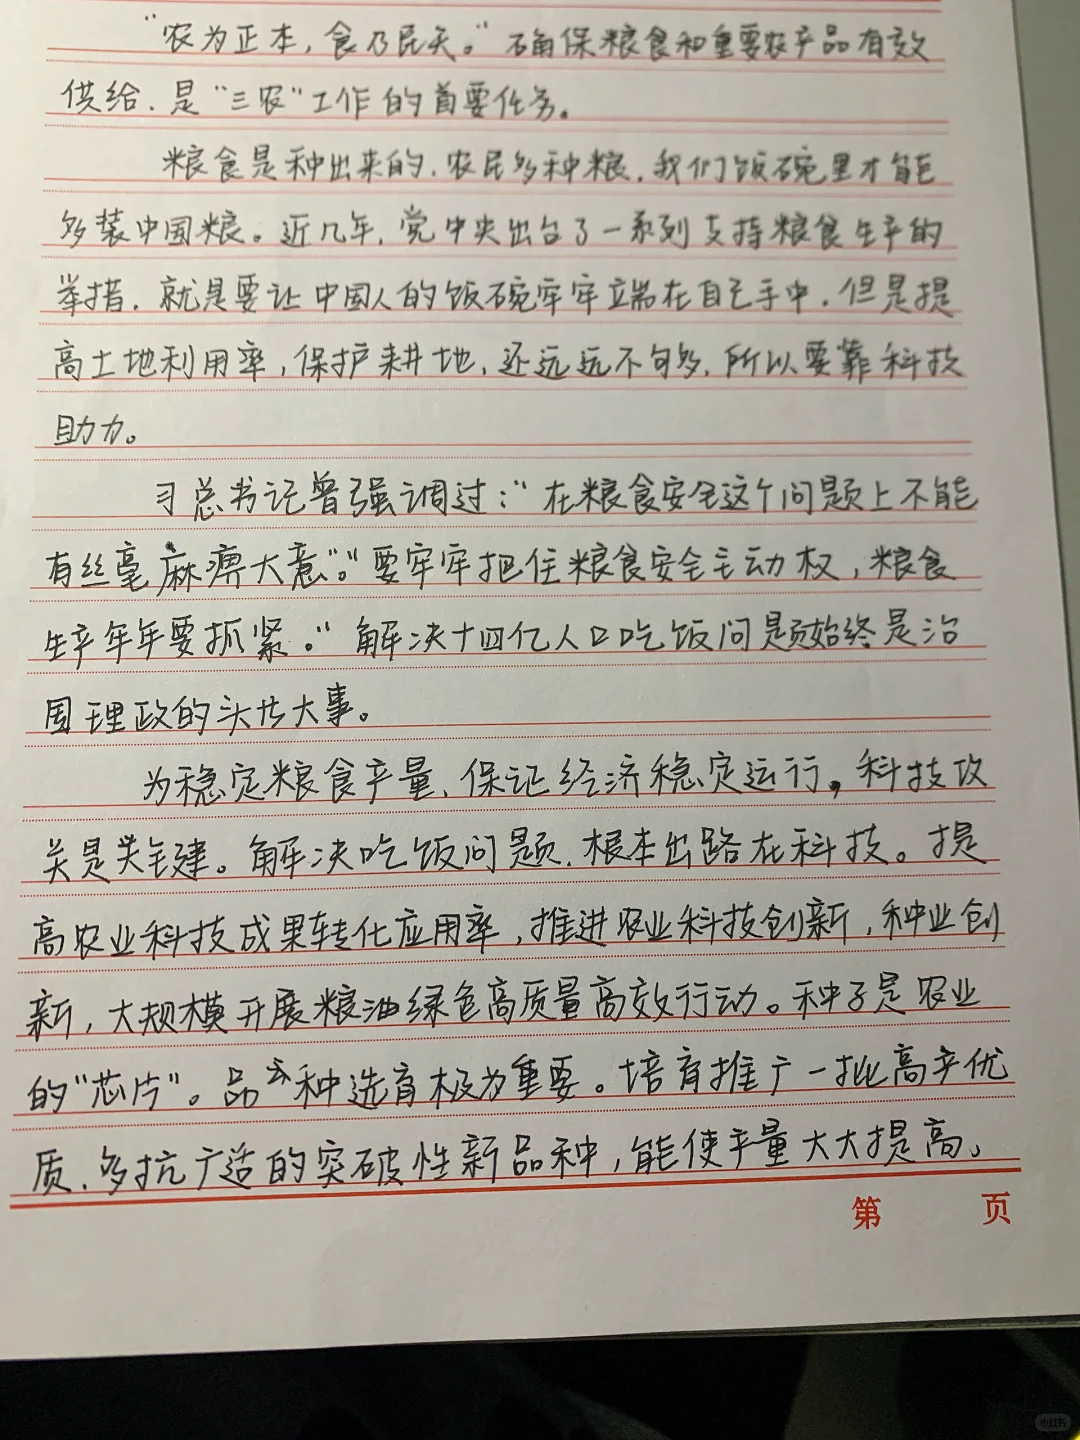 “农为正本，食乃民天。”确保粮食和重要农产品有效
供给，是“三农”工作的首要任务。
粮食是种出来的，农民多种粮，我们饭碗里才能
多装中国粮。近几年，党中央出台了一系列支持粮食生产的
举措，就是要让中国人的饭碗牢牢端在自己手中，但是提
高土地利用率，保护耕地，还远远不够，所以要靠科技
助力。
习总书记曾强调过：“在粮食安全这个问题上不能
有丝毫麻痹大意”。“要牢牢把住粮食安全主动权，粮食
生产年年要抓紧。”解决十四亿人口吃饭问题始终是治
国理政的头等大事。
为稳定粮食产量，保证经济稳定运行，科技攻
关是关键。解决吃饭问题，根本出路在科技。提
高农业科技成果转化应用率，推进农业科技创新，种业创
新，大规模开展粮油绿色高质量高效行动。种子是农业
的“芯片”。品种选育极为重要。培育推广一批高产优
质，多抗广适的突破性新品种，能使产量大大提高。
第 页
小红书